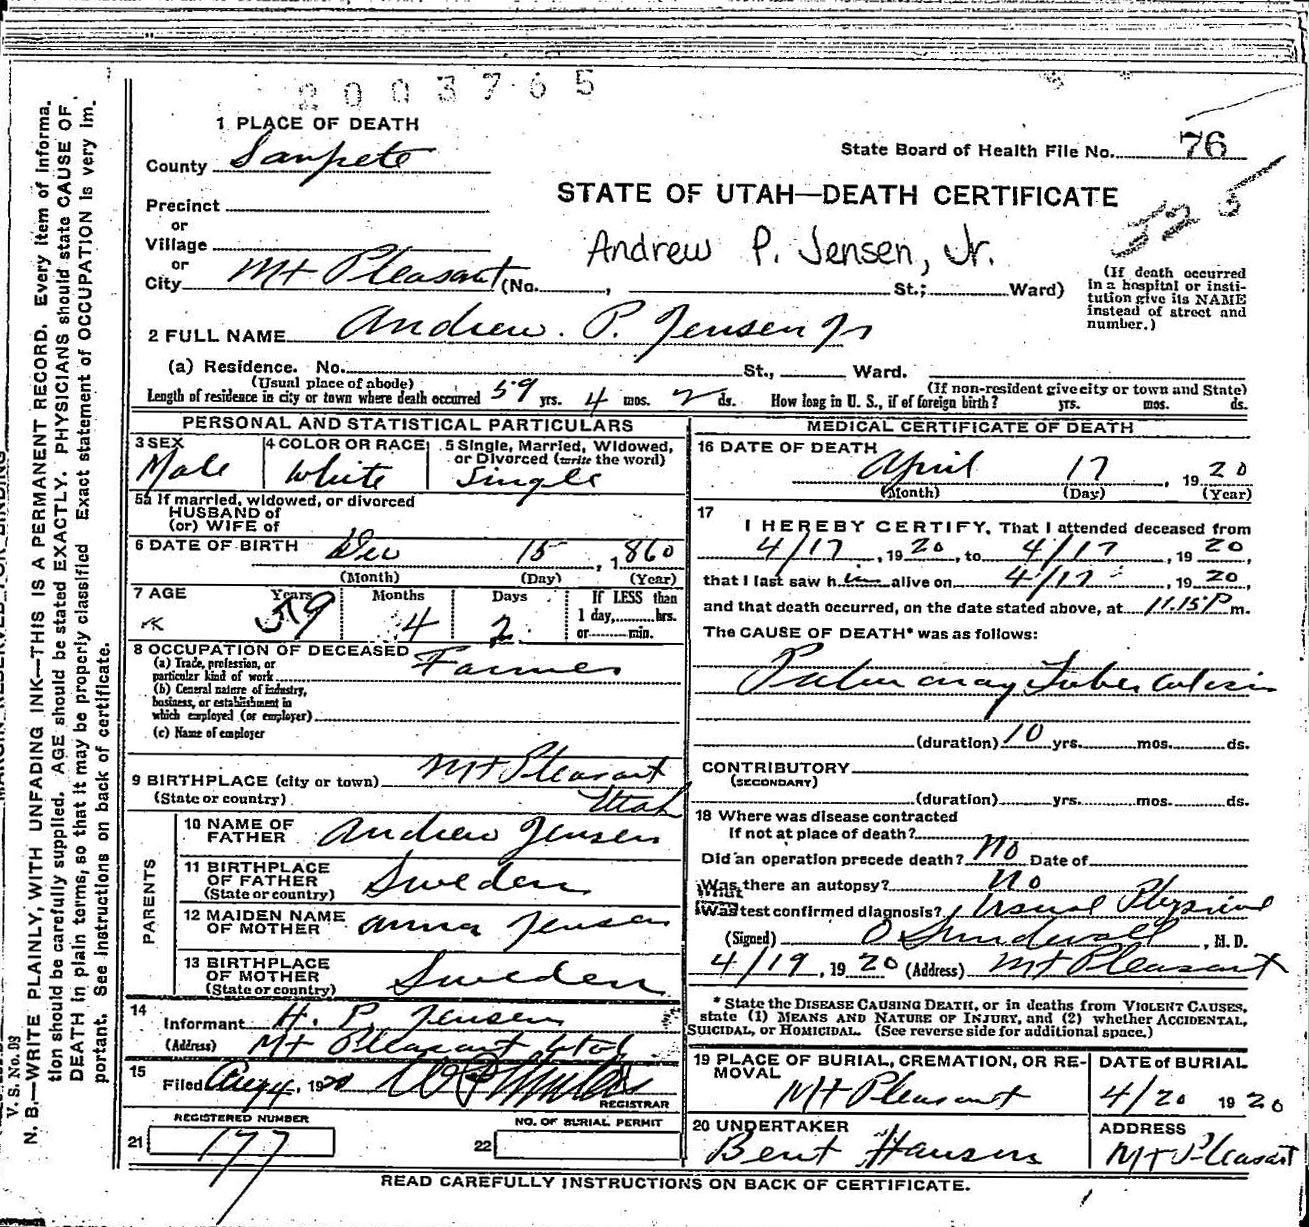 2003765
1 PLACE OF DEATH
County Sanpete
State Board of Health File No. 76
STATE OF UTAH—DEATH CERTIFICATE
525
Precinct
or
Village
or
City Mt Pleasant (No. , St.; Ward)
Andrew P. Jensen, Jr.
(If death occurred
in a hospital or insti-
tution give its NAME
instead of street and
number.)
2 FULL NAME Andrew. P. Jensen Jr
(a) Residence. No. St., Ward.
(Usual place of abode) (If non-resident give city or town and State)
Length of residence in city or town where death occurred 59 yrs. 4 mos. 2 ds. How long in U. S., if of foreign birth? yrs. mos. ds.
PERSONAL AND STATISTICAL PARTICULARS
3 SEX
Male
4 COLOR OR RACE
White
5 Single, Married, Widowed,
or Divorced (write the word)
Single
5a If married, widowed, or divorced
HUSBAND of
(or) WIFE of
6 DATE OF BIRTH Dec 15, 1860
(Month) (Day) (Year)
7 AGE Years Months Days If LESS than
1 day, hrs.
or min.
59 4 2
8 OCCUPATION OF DECEASED
(a) Trade, profession, or
particular kind of work Farmer
(b) General nature of industry,
business, or establishment in
which employed (or employer)
(c) Name of employer
9 BIRTHPLACE (city or town) Mt Pleasant
(State or country) Utah
PARENTS
10 NAME OF
FATHER Andrew Jensen
11 BIRTHPLACE
OF FATHER
(State or country) Sweden
12 MAIDEN NAME
OF MOTHER Anna Jensen
13 BIRTHPLACE
OF MOTHER
(State or country) Sweden
14
Informant H. P. Jensen
(Address) Mt Pleasant Utah
15
Filed Aug 4, 1920
REGISTRAR
REGISTERED NUMBER
21 177
NO. OF BURIAL PERMIT
22
MEDICAL CERTIFICATE OF DEATH
16 DATE OF DEATH
April 17, 1920
(Month) (Day) (Year)
17
I HEREBY CERTIFY, That I attended deceased from
4/17, 1920, to 4/17, 1920,
that I last saw him alive on 4/17, 1920,
and that death occurred, on the date stated above, at 11.15 P m.
The CAUSE OF DEATH* was as follows:
Pulmonary Tuberculosis
(duration) 10 yrs. mos. ds.
CONTRIBUTORY
(SECONDARY)
(duration) yrs. mos. ds.
18 Where was disease contracted
if not at place of death?
Did an operation precede death? No Date of
Was there an autopsy? No
What test confirmed diagnosis? Usual Physical
(Signed) O Sundwall, M. D.
4/19, 1920 (Address) Mt Pleasant
* State the DISEASE CAUSING DEATH, or in deaths from VIOLENT CAUSES,
state (1) MEANS AND NATURE OF INJURY, and (2) whether ACCIDENTAL,
SUICIDAL, or HOMICIDAL. (See reverse side for additional space.)
19 PLACE OF BURIAL, CREMATION, OR RE-
MOVAL
Mt Pleasant
DATE of BURIAL
4/20 1920
20 UNDERTAKER
Bent Hansen
ADDRESS
Mt Pleasant
READ CAREFULLY INSTRUCTIONS ON BACK OF CERTIFICATE.
MARGIN RESERVED FOR BINDING
V. S. No. 98
N. B.—WRITE PLAINLY, WITH UNFADING INK—THIS IS A PERMANENT RECORD. Every item of informa.
tion should be carefully supplied. AGE should be stated EXACTLY. PHYSICIANS should state CAUSE OF
DEATH in plain terms, so that it may be properly classified. Exact statement of OCCUPATION is very im.
portant. See instructions on back of certificate.